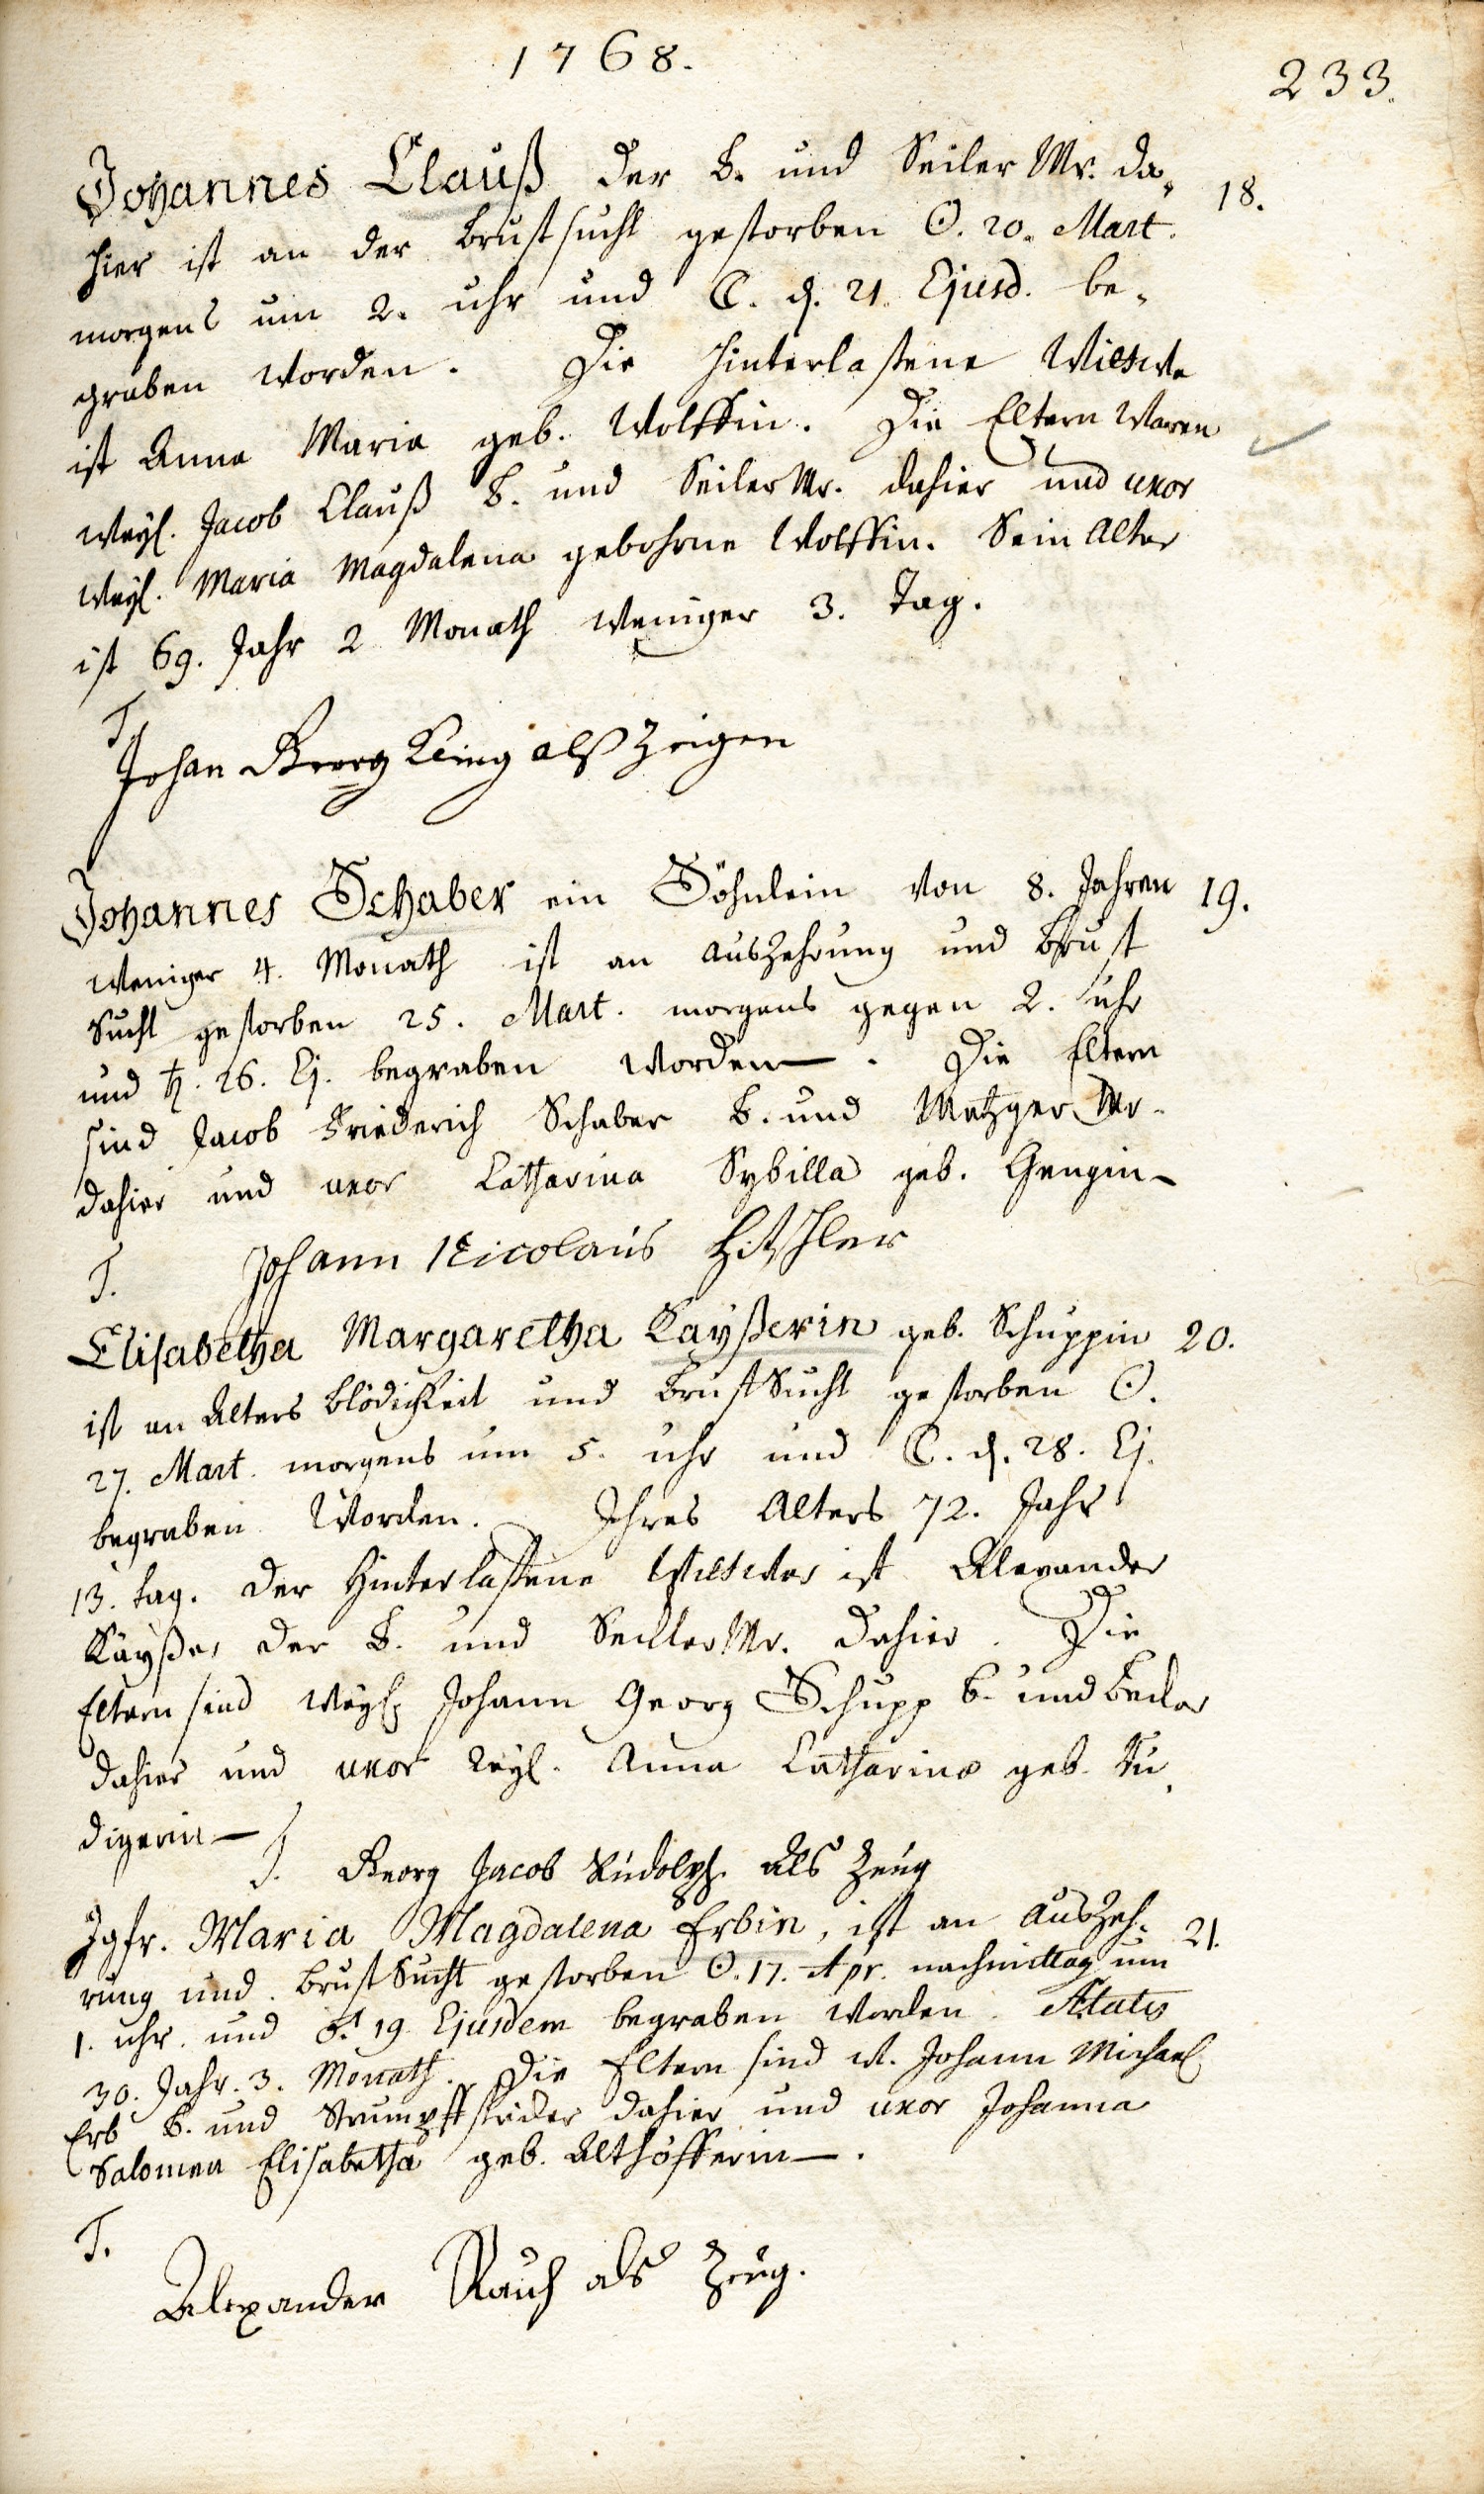 1768.
233.
Johannes Clauß der B. und Seiler Mr. da„ 18.
hier ist an der Brustsucht gestorben ☉. 20. Mart.
morgens um 2. uhr und ☾. d. 21. Ejusd. be„
graben worden. Die hinterlaßene Wittwe
ist Anna Maria geb. Wolffin. Die Eltern waren
weyl. Jacob Clauß B. und Seiler Mr. dahier und uxor
weyl. Maria Magdalena gebohrne Wolffin. Sein Alter
ist 69. Jahr 2 Monath weniger 3. Tag.
T.
Johan Georg Kling alß Zeigen
Johannes Schaber ein Söhnlein von 8. Jahren 19.
weniger 4. Monath ist an Auszehrung und Brust
Sucht gestorben 25. Mart. morgens gegen 2. uhr
und ♄. 26. Ej. begraben worden. Die Eltern
sind Jacob Friederich Schaber B. und Metzger Mr.
dahier und uxor Catharina Sybilla geb. Gengin
T. Johann Nicolaus Hitschler
Elisabetha Margaretha Kayßerin geb. Schuppin 20.
ist an Alters Blödigkeit und Brust Sucht gestorben ☉.
27. Mart. morgens um 5. uhr und ☾. d. 28. Ej.
begraben worden. Ihres Alters 72. Jahr
13. tag. Der Hinterlaßene Wittwer ist Alexander
Kayßer der B. und Mr. dahier. Die
Eltern sind weyl. Johann Georg Schupp B. und Becker
dahier und uxor weyl. Anna Catharina geb. Rü„
digerin
T. Georg Jacob Rudolph Als Zeug
Jgfr. Maria Magdalena Erbin, ist an Auszeh„ 21.
rung und Brust Sucht gestorben ☉. 17. Apr. nachmittag um
1. uhr. und ♂. 19. Ejusdem begraben worden. Ætatis
30. Jahr. 3. Monath. Die Eltern sind w. Johann Michael
Erb B. und Strumpfstricker dahier und uxor Johanna
Salomea Elisabetha geb. Althöfferin.
T.
Alexander Rauch als Zeug.